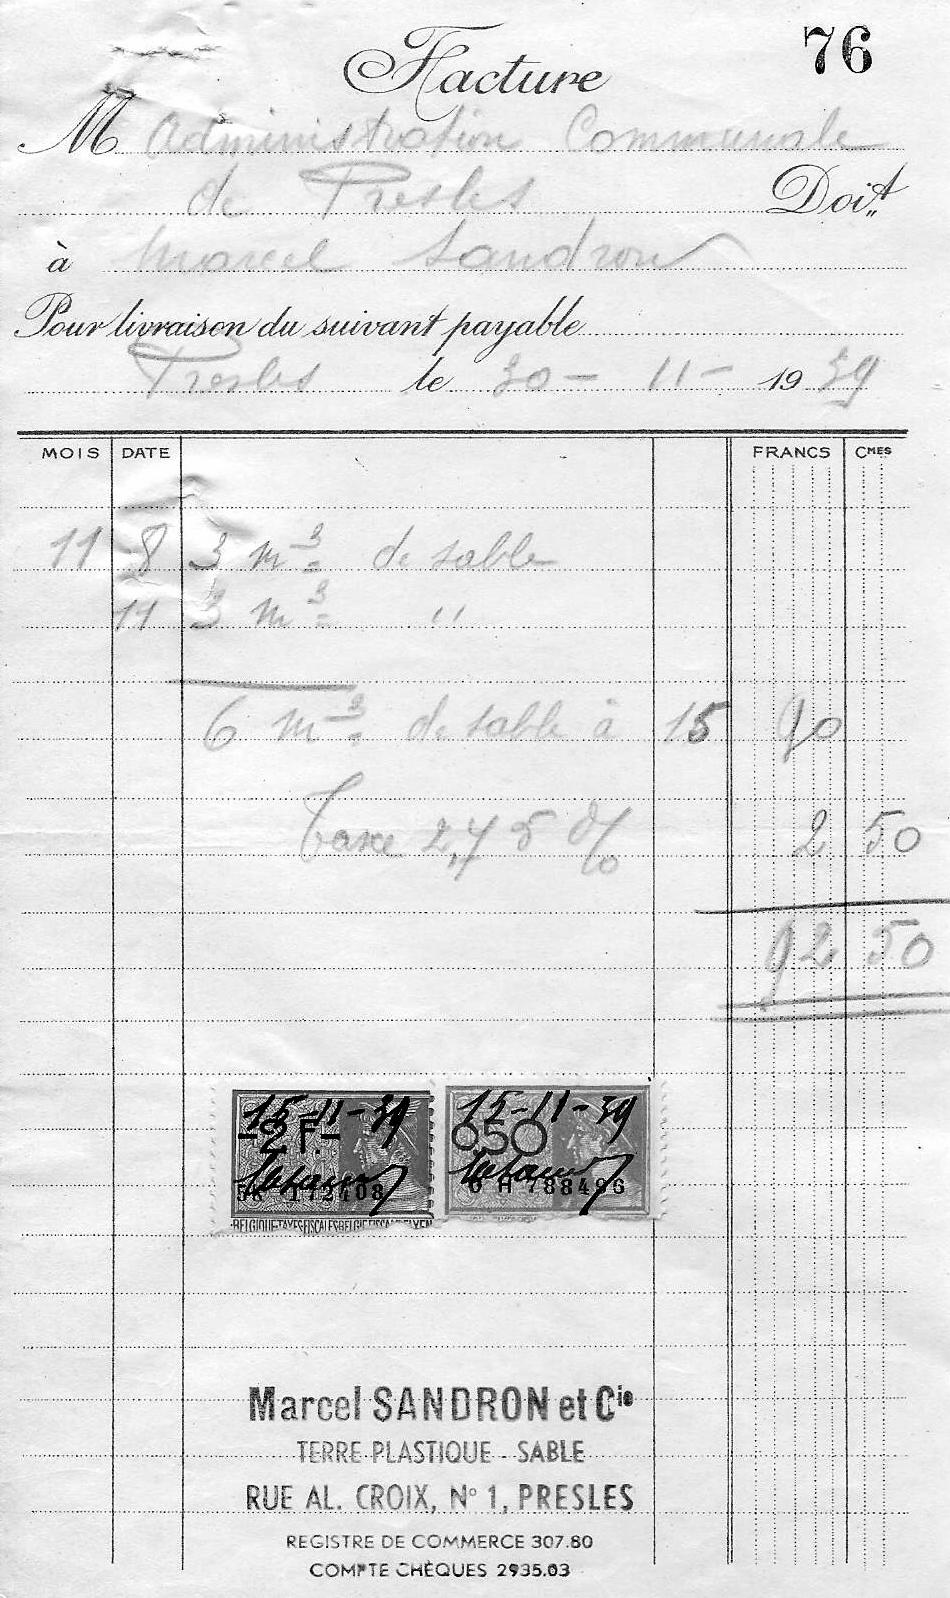 76
Facture
M Administration Communale
de Presles Doit
à Marcel Sandron
Pour livraison du suivant payable
Presles le 30 - 11 - 1939
MOIS DATE FRANCS CMES
11 8 3 m3 de sable
11 3 m3 "
6 m3 de sable à 15 90
Taxe 2,75 % 2 50
92 50
15-11-39 15-11-39
-2 F.- 050
5K 172408 6 H 788496
BELGIQUE-TAXES FISCALES
Marcel SANDRON et Cie
TERRE PLASTIQUE - SABLE
RUE AL. CROIX, No 1, PRESLES
REGISTRE DE COMMERCE 307.80
COMPTE CHÈQUES 2935.03